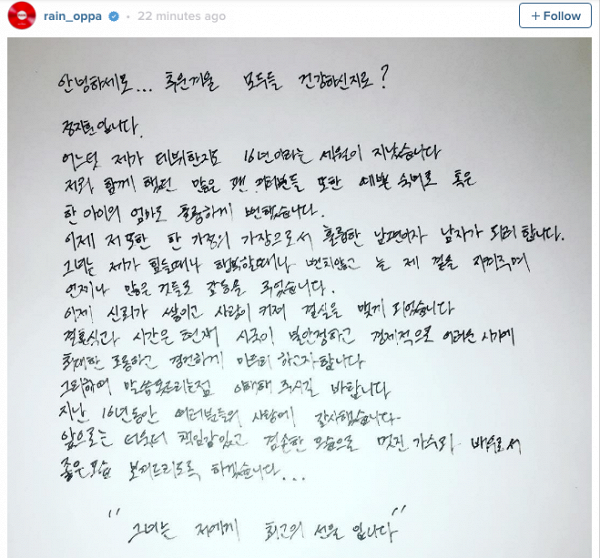 rain_oppa • 22 minutes ago
+ Follow
안녕하세요... 추운겨울 모두들 건강하신지요?
정지훈입니다.
어느덧 제가 데뷔한지도 16년이라는 세월이 지났습니다
저와 함께 했던 많은 팬 여러분들 또한 예쁜 숙녀로 혹은
한 아이의 엄마로 훌륭하게 변했습니다.
이제 저 또한 한 가정의 가장으로서 훌륭한 남편이자 남자가 되려 합니다.
그녀는 제가 힘들때나 행복할때나 변치않고 늘 제 곁을 지켜주며
언제나 많은 것들로 감동을 주었습니다.
이제 신뢰가 쌓이고 사랑이 커져 결실을 맺게 되었습니다
결혼식과 시간은 현재 시국이 불안정하고 경제적으로 어려운 시기에
최대한 조용하고 경건하게 마무리 하고자합니다
그리하여 말씀못드리는점 이해해 주시길 바랍니다
지난 16년동안 여러분들의 사랑에 감사했습니다.
앞으로는 더욱더 책임감있고 겸손한 모습으로 멋진 가수와 배우로서
좋은모습 보여드리도록 하겠습니다...
"그녀는 저에게 최고의 선물 입니다"